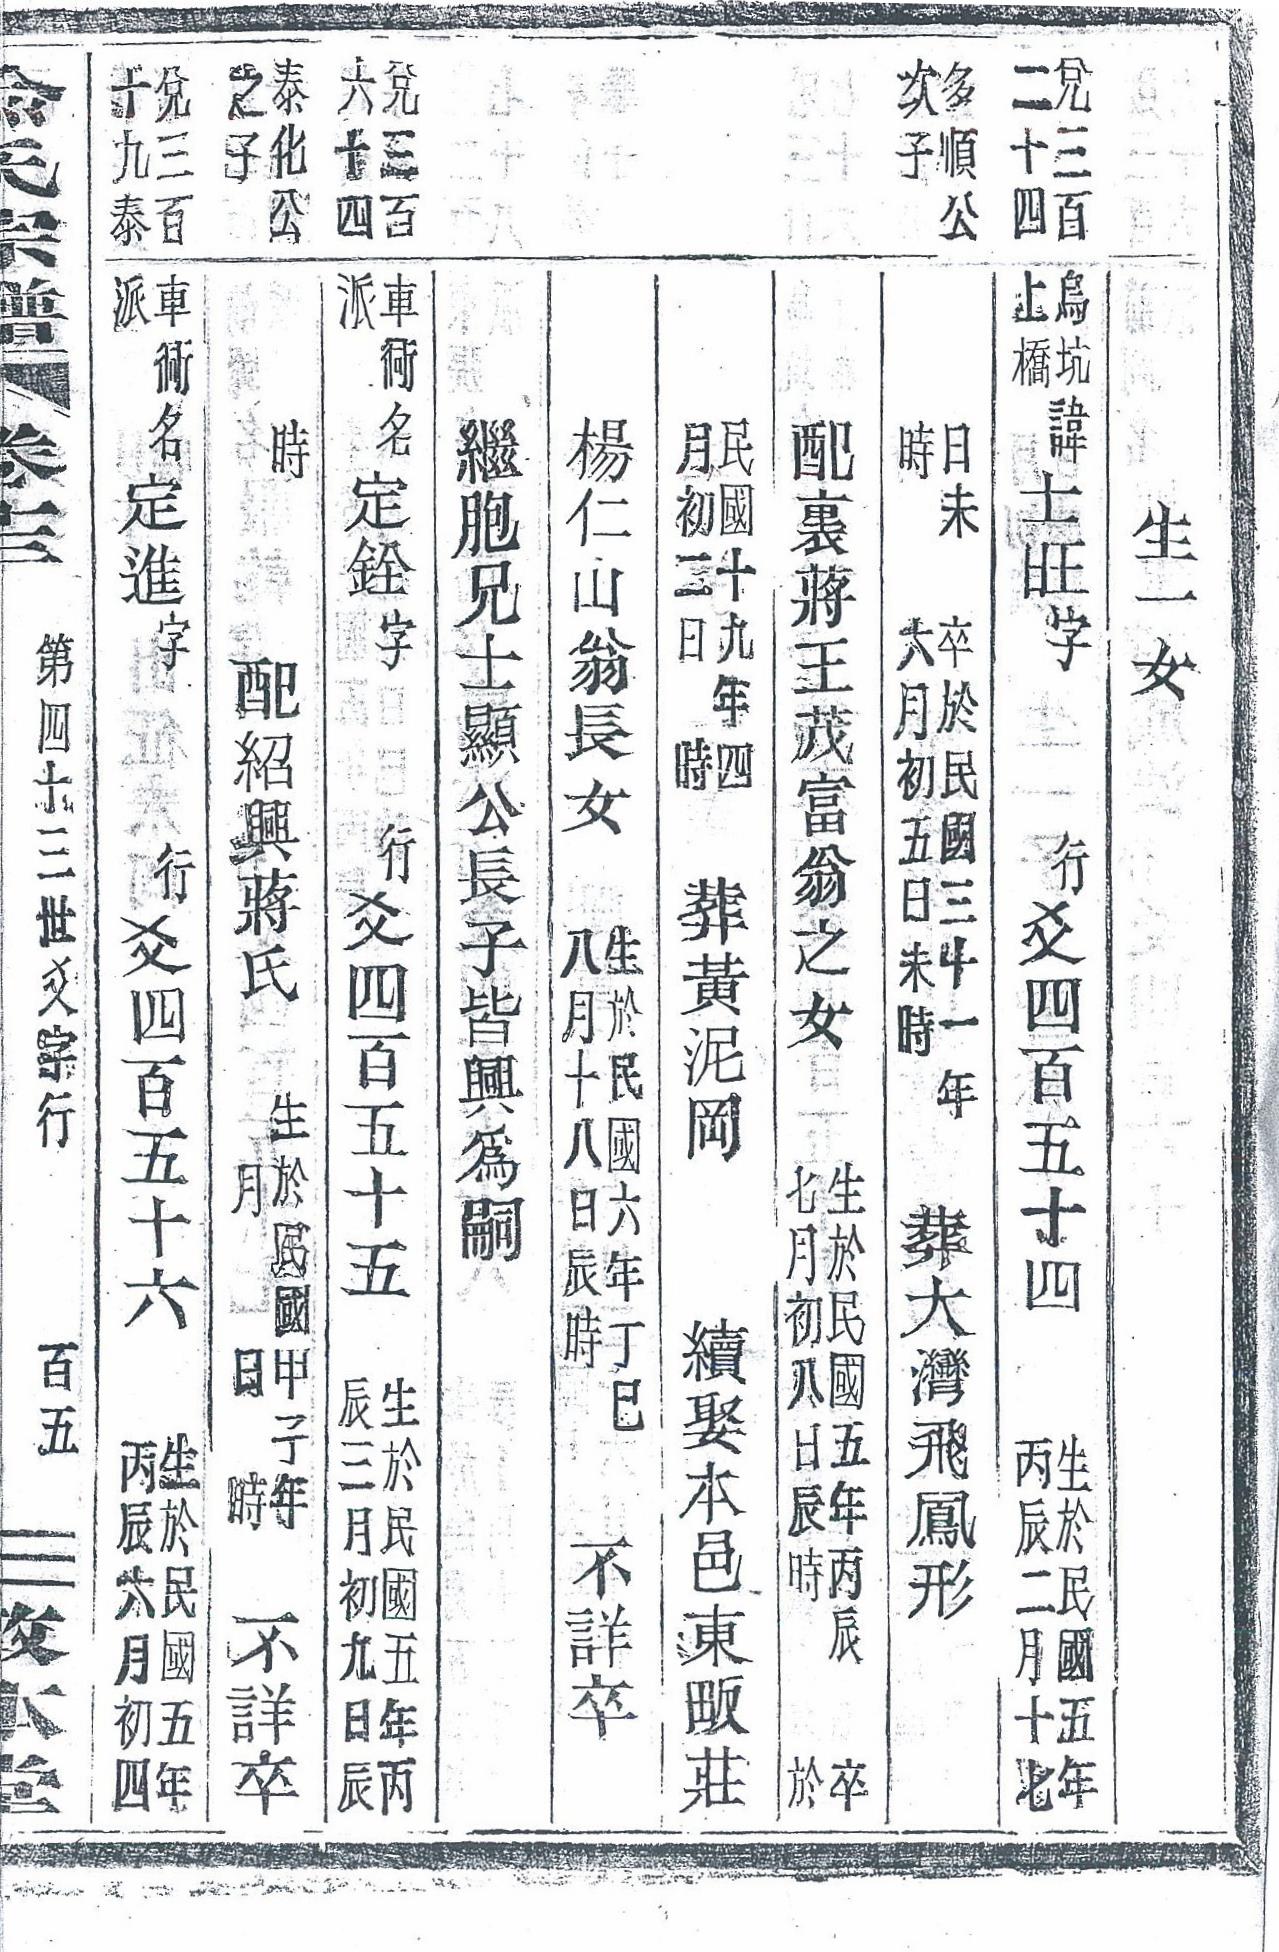 生一女
兌三百
二十四
烏坑
上橋
諱士旺字 行爻四百五十四
生於民國五年
丙辰二月十七
多順公
次子
日未
時
卒於民國三十一年
六月初五日未時
葬大灣飛鳳形
配裏蔣王茂富翁之女
生於民國五年丙辰
七月初八日辰時
卒
於
民國十九年四
月初三日 時
葬黃泥岡 續娶本邑東畈莊
楊仁山翁長女
生於民國六年丁巳
八月十八日辰時
不詳卒
繼胞兄士顯公長子皆興為嗣
兌三百
六十四
車衕
派
名定銓字 行爻四百五十五
生於民國五年丙
辰三月初九日辰
泰化公
之子
時
配紹興蔣氏
生於民國甲子年
月 日 時
不詳卒
兌三百
十九泰
車衕
派
名定進字 行爻四百五十六
生於民國五年
丙辰六月初四
氏宗譜 卷十三
第四十三世爻字行 百五
敦本堂